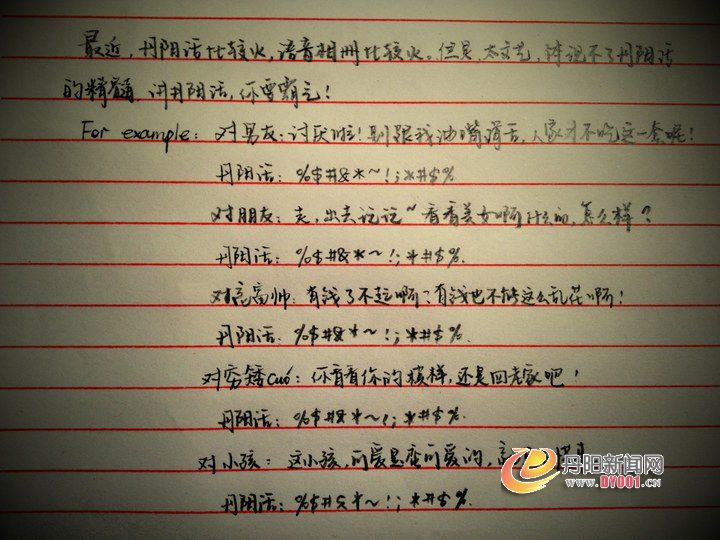 最近，丹阳话比较火，语音相册比较火。但是，太文艺，体现不了丹阳话
的精髓，讲丹阳话，你要霸气！
For example：对男友：讨厌啦！别跟我油嘴滑舌，人家才不吃这一套呢！
丹阳话：%$#&*~!;*#$%
对朋友：走，出去玩玩~看看美女啊什么的，怎么样？
丹阳话：%$#&*~!;*#$%.
对高富帅：有钱了不起啊？有钱也不能这么乱花啊！
丹阳话：%$#&*~!;*#$%.
对穷矮cuó：你看看你的模样，还是回老家吧！
丹阳话：%$#&*~!;*#$%.
对小孩：这小孩，可爱是蛮可爱的，
丹阳话：%$#&*~!;*#$%.
丹阳新闻网
WWW.DY001.CN